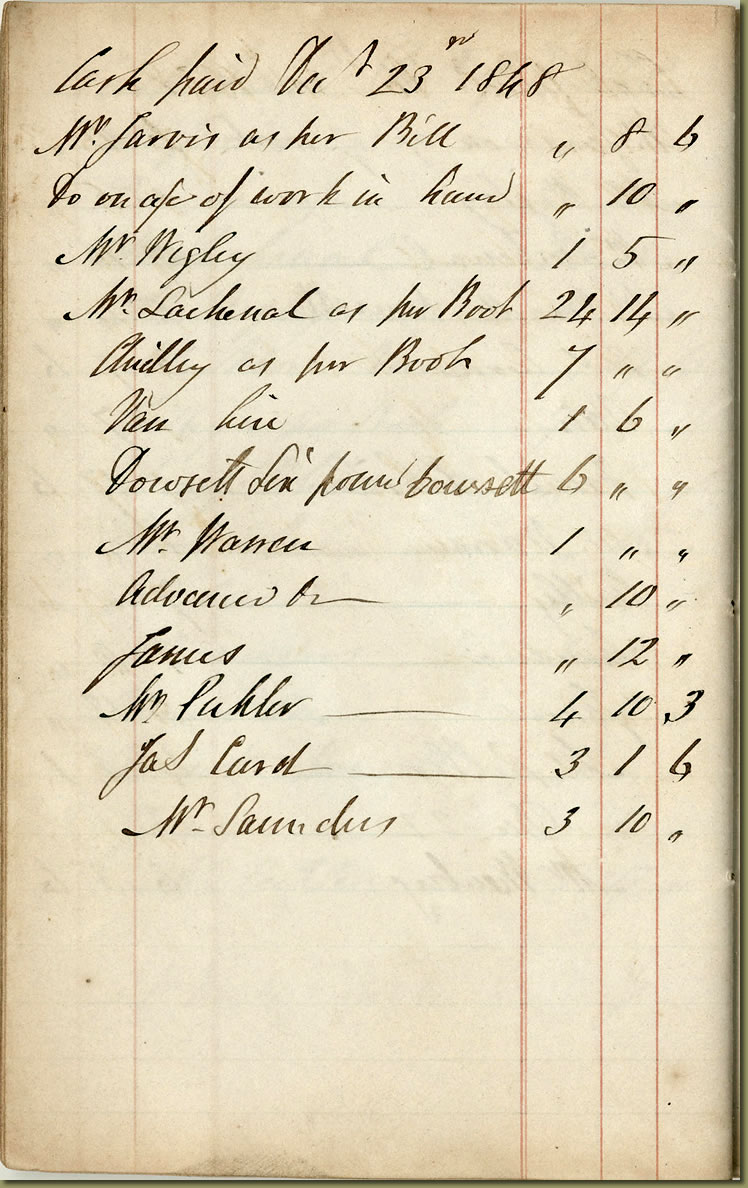 Cash paid Dec r 23rd 1848
Mr. Jarvis as per Bill „ 8 6
Do on a/c of work in hand „ 10 „
Mr. Wigley 1 5 „
Mr. Lachenal as per Book 24 14 „
Chidley as per Book 7 „ „
Van hire 1 6 „
Dowsett Six pound Dowsett 6 „ „
Mr. Warren 1 „ „
Advance Do — „ 10 „
James „ 12 „
Mr Pichler — 4 10 3
Jas Card — 3 1 6
Mr Saunders 3 10 „